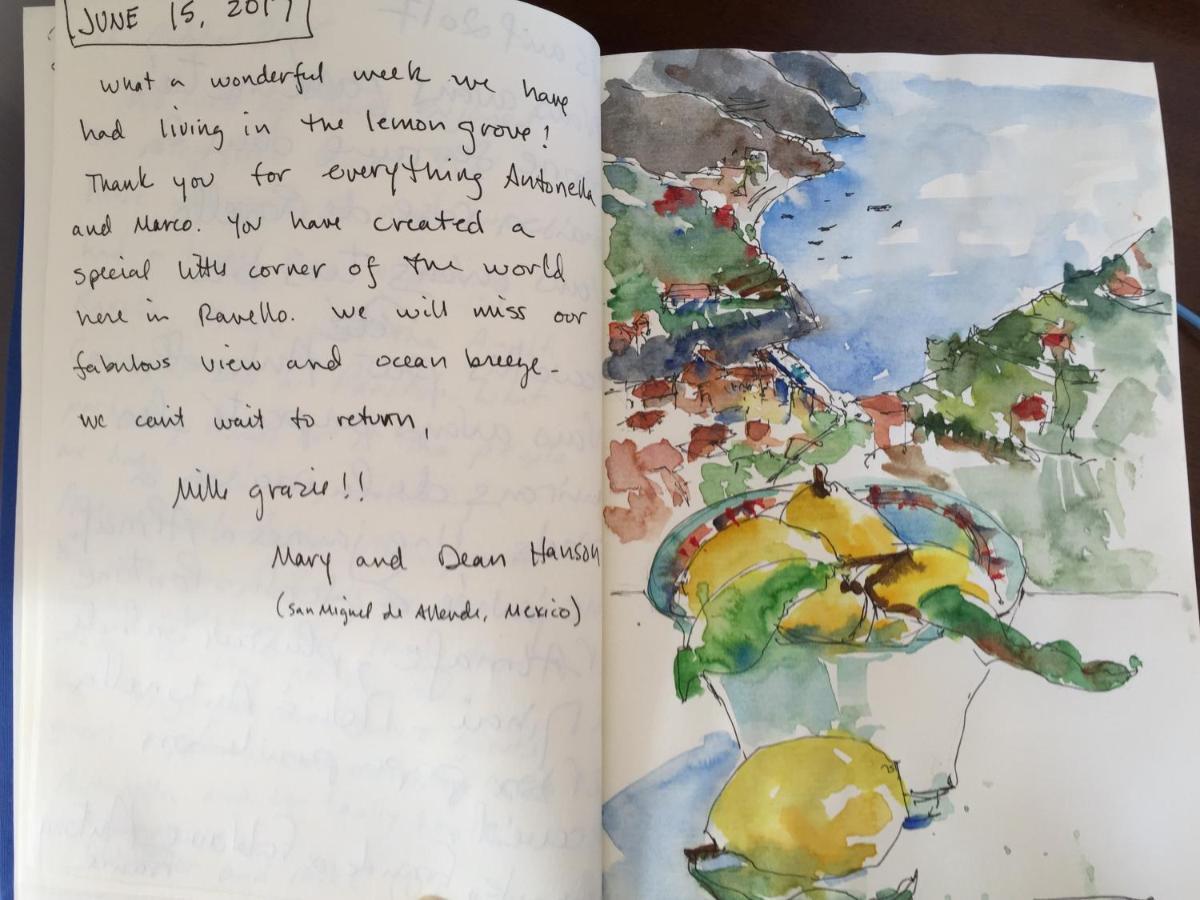 JUNE 15, 2017
What a wonderful week we have
had living in the lemon grove!
Thank you for everything Antonella
and Marco. You have created a
special little corner of the world
here in Ravello. We will miss our
fabulous view and ocean breeze -
we can't wait to return,
Mille grazie!!
Mary and Dean Hanson
(San Miguel de Allende, Mexico)